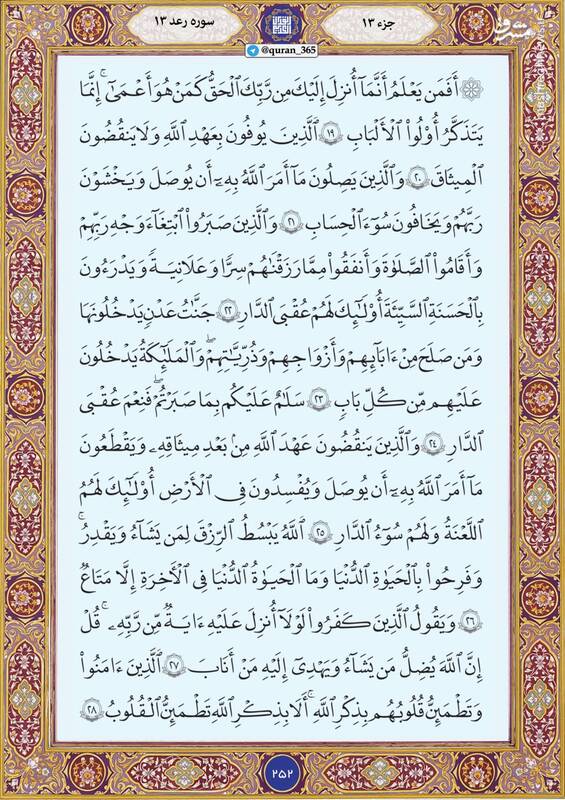 جزء ۱۳
سوره رعد ۱۳
مشرق
@quran_365
۞ أَفَمَن يَعْلَمُ أَنَّمَآ أُنزِلَ إِلَيْكَ مِن رَّبِّكَ ٱلْحَقُّ كَمَنْ هُوَ أَعْمَىٰٓ ۚ إِنَّمَا
يَتَذَكَّرُ أُو۟لُوا۟ ٱلْأَلْبَٰبِ ۱۹ ٱلَّذِينَ يُوفُونَ بِعَهْدِ ٱللَّهِ وَلَا يَنقُضُونَ
ٱلْمِيثَٰقَ ۲۰ وَٱلَّذِينَ يَصِلُونَ مَآ أَمَرَ ٱللَّهُ بِهِۦٓ أَن يُوصَلَ وَيَخْشَوْنَ
رَبَّهُمْ وَيَخَافُونَ سُوٓءَ ٱلْحِسَابِ ۲۱ وَٱلَّذِينَ صَبَرُوا۟ ٱبْتِغَآءَ وَجْهِ رَبِّهِمْ
وَأَقَامُوا۟ ٱلصَّلَوٰةَ وَأَنفَقُوا۟ مِمَّا رَزَقْنَٰهُمْ سِرًّا وَعَلَانِيَةً وَيَدْرَءُونَ
بِٱلْحَسَنَةِ ٱلسَّيِّئَةَ أُو۟لَٰٓئِكَ لَهُمْ عُقْبَى ٱلدَّارِ ۲۲ جَنَّٰتُ عَدْنٍ يَدْخُلُونَهَا
وَمَن صَلَحَ مِنْ ءَابَآئِهِمْ وَأَزْوَٰجِهِمْ وَذُرِّيَّٰتِهِمْ ۖ وَٱلْمَلَٰٓئِكَةُ يَدْخُلُونَ
عَلَيْهِم مِّن كُلِّ بَابٍ ۲۳ سَلَٰمٌ عَلَيْكُم بِمَا صَبَرْتُمْ ۚ فَنِعْمَ عُقْبَى
ٱلدَّارِ ۲۴ وَٱلَّذِينَ يَنقُضُونَ عَهْدَ ٱللَّهِ مِنۢ بَعْدِ مِيثَٰقِهِۦ وَيَقْطَعُونَ
مَآ أَمَرَ ٱللَّهُ بِهِۦٓ أَن يُوصَلَ وَيُفْسِدُونَ فِى ٱلْأَرْضِ أُو۟لَٰٓئِكَ لَهُمُ
ٱللَّعْنَةُ وَلَهُمْ سُوٓءُ ٱلدَّارِ ۲۵ ٱللَّهُ يَبْسُطُ ٱلرِّزْقَ لِمَن يَشَآءُ وَيَقْدِرُ ۚ
وَفَرِحُوا۟ بِٱلْحَيَوٰةِ ٱلدُّنْيَا وَمَا ٱلْحَيَوٰةُ ٱلدُّنْيَا فِى ٱلْأَخِرَةِ إِلَّا مَتَٰعٌ
۲۶ وَيَقُولُ ٱلَّذِينَ كَفَرُوا۟ لَوْلَآ أُنزِلَ عَلَيْهِ ءَايَةٌ مِّن رَّبِّهِۦ ۗ قُلْ
إِنَّ ٱللَّهَ يُضِلُّ مَن يَشَآءُ وَيَهْدِىٓ إِلَيْهِ مَنْ أَنَابَ ۲۷ ٱلَّذِينَ ءَامَنُوا۟
وَتَطْمَئِنُّ قُلُوبُهُم بِذِكْرِ ٱللَّهِ ۗ أَلَا بِذِكْرِ ٱللَّهِ تَطْمَئِنُّ ٱلْقُلُوبُ ۲۸
۲۵۲